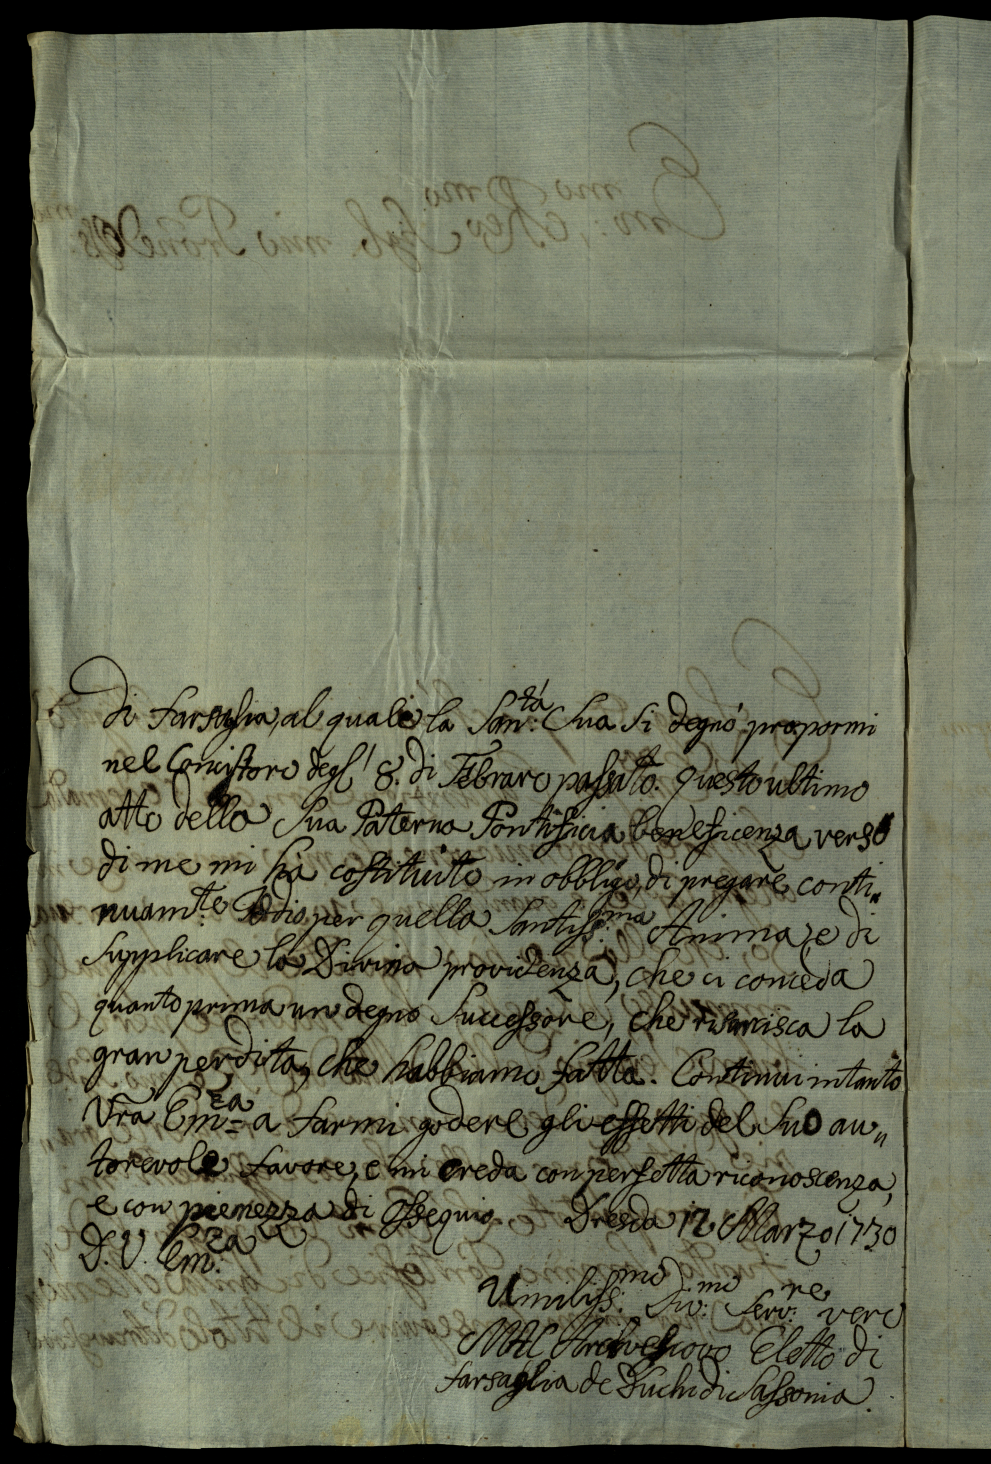 di Farsaglia, al quale la San:tà Sua si degnò propormi
nel Concistoro degl' 8. di Febraro passato. questo ultimo
atto della Sua Paterna Pontificia beneficenza verso
di me mi hà costituito in obbligo, di pregare conti„
nuam:te Iddio per quella Santiss:ma Anima, e di
supplicare la Divina providenza, che ci conceda
quanto prima un degno Successore, che risarcisca la
gran perdita, che habbiamo fatta. Continui intanto
Vra Em:za a farmi godere gli effetti del suo au„
torevole favore, e mi creda con perfetta riconoscenza,
e con pienezza di ossequio. Dresda 12 Marzo 1730
D. V. Em:za
Umiliss:mo Div:mo Serv:re vero
Archivescovo Eletto di
Farsaglia de Duchi di Sassonia.